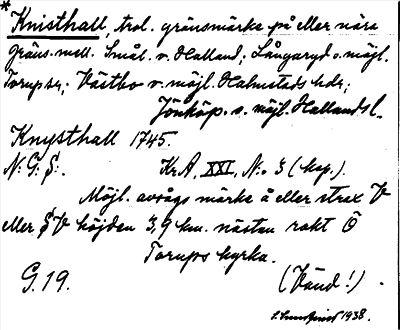 * Knisthall, trol. gränsmärke på eller nära
gräns. mell. Smål. o. Halland; Långaryd o. möjl.
Torups sr; Västbo o. möjl. Halmstads hdr;
Jönköp. o. möjl. Hallands l.
Knysthall 1745.
N: G: S:. Kr. A. XXI, N:o 3 (kop.).
Möjl. avsågs märke å eller strax V
eller SV höjden 3,9 km. nästan rakt Ö
Torups kyrka.
G. 19. (Vänd!)
1938.